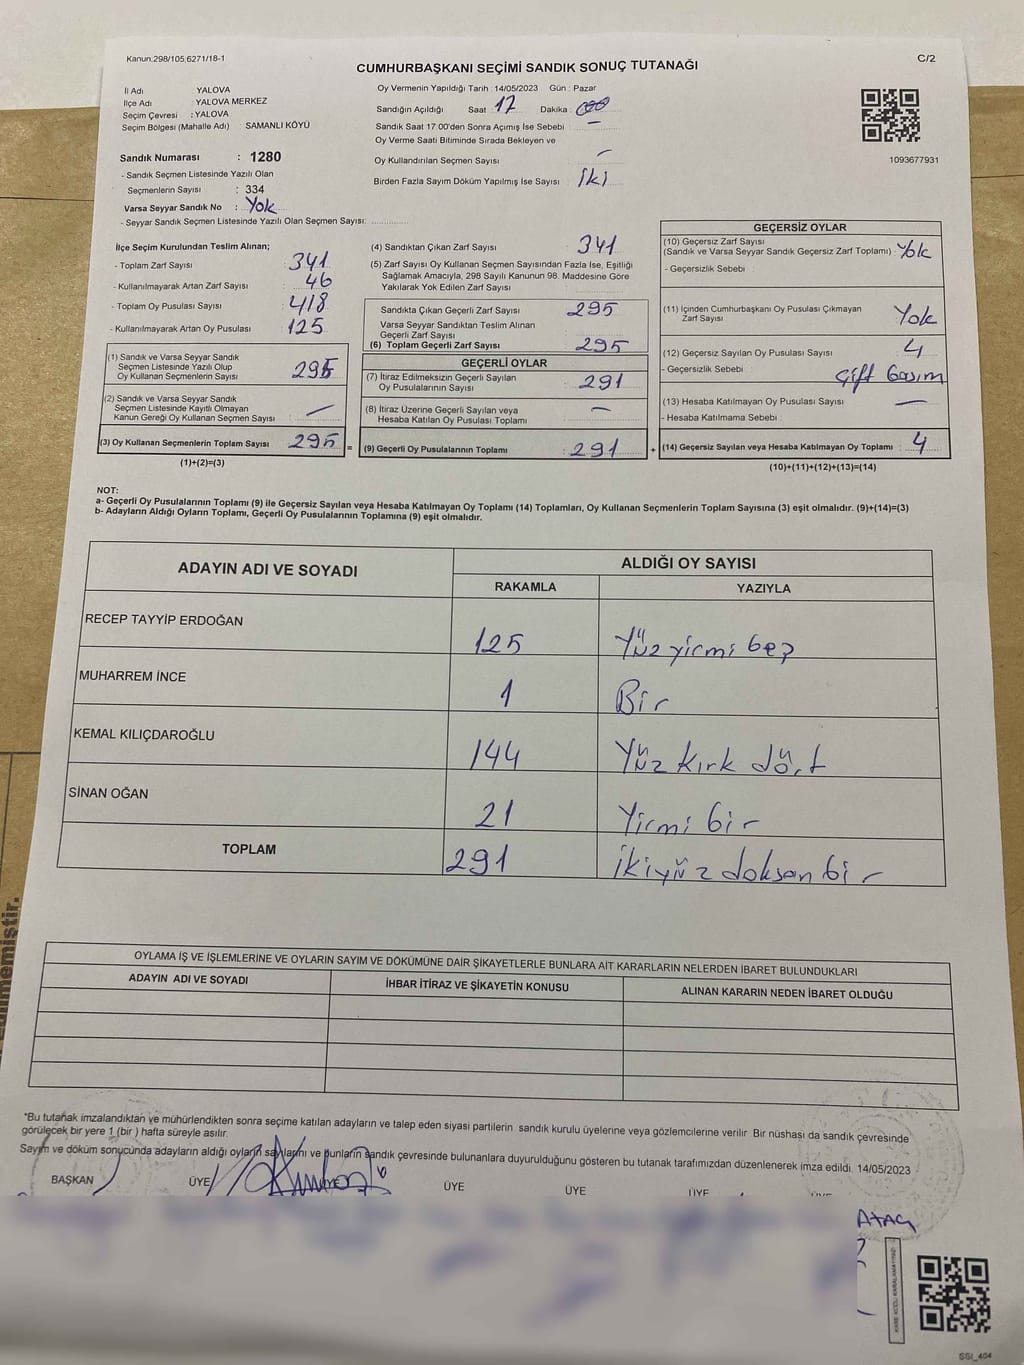 Kanun.298/105,6271/18-1
C/2
CUMHURBAŞKANI SEÇİMİ SANDIK SONUÇ TUTANAĞI
İl Adı YALOVA
İlçe Adı : YALOVA MERKEZ
Seçim Çevresi : YALOVA
Seçim Bölgesi (Mahalle Adı) : SAMANLI KÖYÜ
Sandık Numarası : 1280
- Sandık Seçmen Listesinde Yazılı Olan
Seçmenlerin Sayısı : 334
Varsa Seyyar Sandık No : Yok
- Seyyar Sandık Seçmen Listesinde Yazılı Olan Seçmen Sayısı: ............
Oy Vermenin Yapıldığı Tarih : 14/05/2023 Gün : Pazar
Sandığın Açıldığı Saat 17 Dakika : 00
Sandık Saat 17:00'den Sonra Açımış İse Sebebi : —
Oy Verme Saati Bitiminde Sırada Bekleyen ve
Oy Kullandırılan Seçmen Sayısı —
Birden Fazla Sayım Döküm Yapılmış İse Sayısı : iki
1093677931
İlçe Seçim Kurulundan Teslim Alınan;
- Toplam Zarf Sayısı 341
- Kullanılmayarak Artan Zarf Sayısı : 46
- Toplam Oy Pusulası Sayısı : 418
- Kullanılmayarak Artan Oy Pusulası : 125
(1) Sandık ve Varsa Seyyar Sandık
Seçmen Listesinde Yazılı Olup
Oy Kullanan Seçmenlerin Sayısı : 295
(2) Sandık ve Varsa Seyyar Sandık
Seçmen Listesinde Kayıtlı Olmayan
Kanun Gereği Oy Kullanan Seçmen Sayısı : —
(3) Oy Kullanan Seçmenlerin Toplam Sayısı : 295
(1)+(2)=(3)
(4) Sandıktan Çıkan Zarf Sayısı : 341
(5) Zarf Sayısı Oy Kullanan Seçmen Sayısından Fazla İse, Eşitliği
Sağlamak Amacıyla, 298 Sayılı Kanunun 98. Maddesine Göre
Yakılarak Yok Edilen Zarf Sayısı:
Sandıkta Çıkan Geçerli Zarf Sayısı : 295
Varsa Seyyar Sandıktan Teslim Alınan
Geçerli Zarf Sayısı :
(6) Toplam Geçerli Zarf Sayısı : 295
GEÇERLİ OYLAR
(7) İtiraz Edilmeksizin Geçerli Sayılan
Oy Pusulalarının Sayısı : 291
(8) İtiraz Üzerine Geçerli Sayılan veya
Hesaba Katılan Oy Pusulası Toplamı : —
= (9) Geçerli Oy Pusulalarının Toplamı : 291 +
GEÇERSİZ OYLAR
(10) Geçersiz Zarf Sayısı
(Sandık ve Varsa Seyyar Sandık Geçersiz Zarf Toplamı) : Yok
- Geçersizlik Sebebi :
(11) İçinden Cumhurbaşkanı Oy Pusulası Çıkmayan
Zarf Sayısı : Yok
(12) Geçersiz Sayılan Oy Pusulası Sayısı : 4
- Geçersizlik Sebebi : Çift basım
(13) Hesaba Katılmayan Oy Pusulası Sayısı : —
- Hesaba Katılmama Sebebi :
(14) Geçersiz Sayılan veya Hesaba Katılmayan Oy Toplamı : 4
(10)+(11)+(12)+(13)=(14)
NOT:
a- Geçerli Oy Pusulalarının Toplamı (9) ile Geçersiz Sayılan veya Hesaba Katılmayan Oy Toplamı (14) Toplamları, Oy Kullanan Seçmenlerin Toplam Sayısına (3) eşit olmalıdır. (9)+(14)=(3)
b- Adayların Aldığı Oyların Toplamı, Geçerli Oy Pusulalarının Toplamına (9) eşit olmalıdır.
ADAYIN ADI VE SOYADI ALDIĞI OY SAYISI
RAKAMLA YAZIYLA
RECEP TAYYİP ERDOĞAN 125 Yüz yirmi beş
MUHARREM İNCE 1 Bir
KEMAL KILIÇDAROĞLU 144 Yüz kırk dört
SİNAN OĞAN 21 Yirmi bir
TOPLAM 291 ikiyüz doksan bir
OYLAMA İŞ VE İŞLEMLERİNE VE OYLARIN SAYIM VE DÖKÜMÜNE DAİR ŞİKAYETLERLE BUNLARA AİT KARARLARIN NELERDEN İBARET BULUNDUKLARI
ADAYIN ADI VE SOYADI İHBAR İTİRAZ VE ŞİKAYETİN KONUSU ALINAN KARARIN NEDEN İBARET OLDUĞU
*Bu tutanak imzalandıktan ve mühürlendikten sonra seçime katılan adayların ve talep eden siyasi partilerin sandık kurulu üyelerine veya gözlemcilerine verilir Bir nüshası da sandık çevresinde
görülecek bir yere 1 (bir ) hafta süreyle asılır.
Sayım ve döküm sonucunda adayların aldığı oyların sayılarını ve bunların sandık çevresinde bulunanlara duyurulduğunu gösteren bu tutanak tarafımızdan düzenlenerek imza edildi. 14/05/2023
BAŞKAN ÜYE ÜYE ÜYE ÜYE ÜYE ÜYE
SSI_404